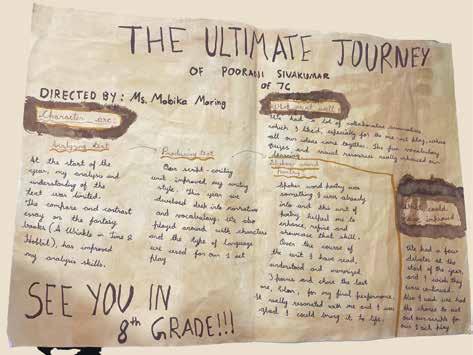 THE ULTIMATE JOURNEY
OF POORANI SIVAKUMAR
of 7G
DIRECTED BY: Ms. Mobika Moring
Character arc:
Analyzing text
At the start of the
year, my analysis and
understanding of the
text was limited.
The compare and contrast
essay on the fantasy
books (A Wrinkle in Time &
Hobbit), has improved
my analysis skills.
Producing text
Our script-writing
unit improved my writing
style. This year we
develved deep into narrative
and vocabulary. We also
played around with characters
and the type of language
we used for our 1 act
play
What went well
We had a lot of collaborative
which I liked, especially for the blog, where
all our ideas came together. The fun vocabulary
and visual resources really enhanced our
learning
Spoken word
Poetry
Spoken word poetry was
something I was already
into and this unit of
poetry helped me to
enhance, refine and
showcase that skill.
Over the course of
the unit I have read,
understood and memorized
3 poems and chose the last
one, for my final performance.
It really resonated with me and I am
glad I could bring it to life.
Which could
have improved
We had a few
debates at the
start of the year,
and I wish they
were continued.
Also I wish we had
the chance to act
out our scripts for
our 1 act play
SEE YOU IN
8th GRADE!!!